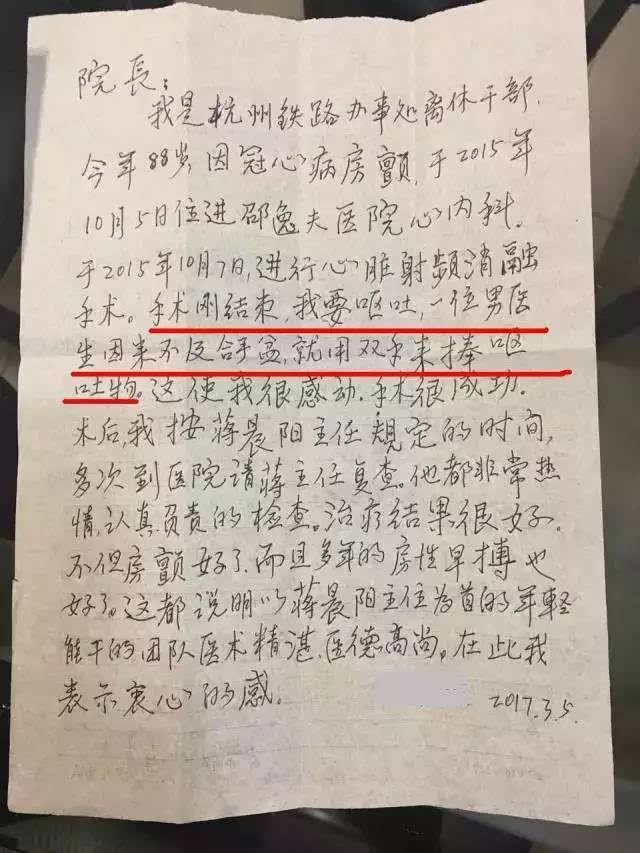 院長：
我是杭州铁路办事处离休干部.
今年88岁,因冠心病房颤,于2015年
10月5日住进邵逸夫医院心内科.
于2015年10月7日,进行心脏射频消融
手术。手术刚结束,我要呕吐,一位男医
生因来不及拿盆,就用双手来捧呕
吐物。这使我很感动.手术很成功.
术后,我按蒋晨阳主任规定的时间,
多次到医院请蒋主任复查。他都非常热
情,认真负责的检查。治疗结果很好.
不但房颤好了.而且多年的房性早搏也
好了。这都说明以蒋晨阳主任为首的年轻
能干的团队医术精湛、医德高尚。在此我
表示衷心的感。
2017.3.5.